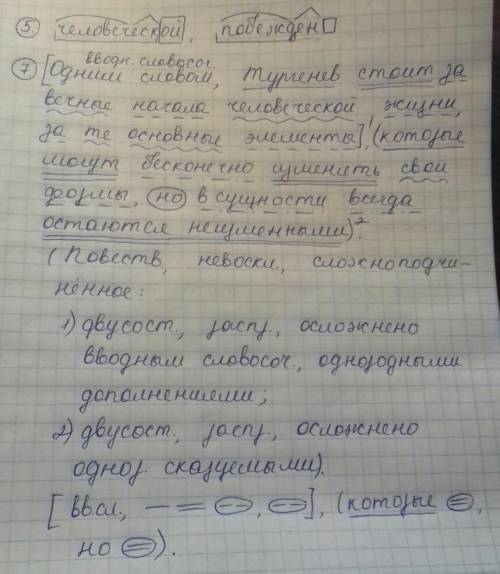 5. человеческой, побежден
вводн. словосоч.
7 [Одним словом, Тургенев стоит за
вечные начала человеческой жизни,
за те основные элементы]¹, (которые
могут бесконечно изменять свои
формы, но в сущности всегда
остаются неизменными)².
(Повеств, невоскл., сложноподчи-
нённое:
1) двусост., расп., осложнено
вводным словосоч., однородными
дополнениями;
2) двусост., расп., осложнено
одног. сказуемыми).
[ввсл, — = , ], (которые =,
но =).